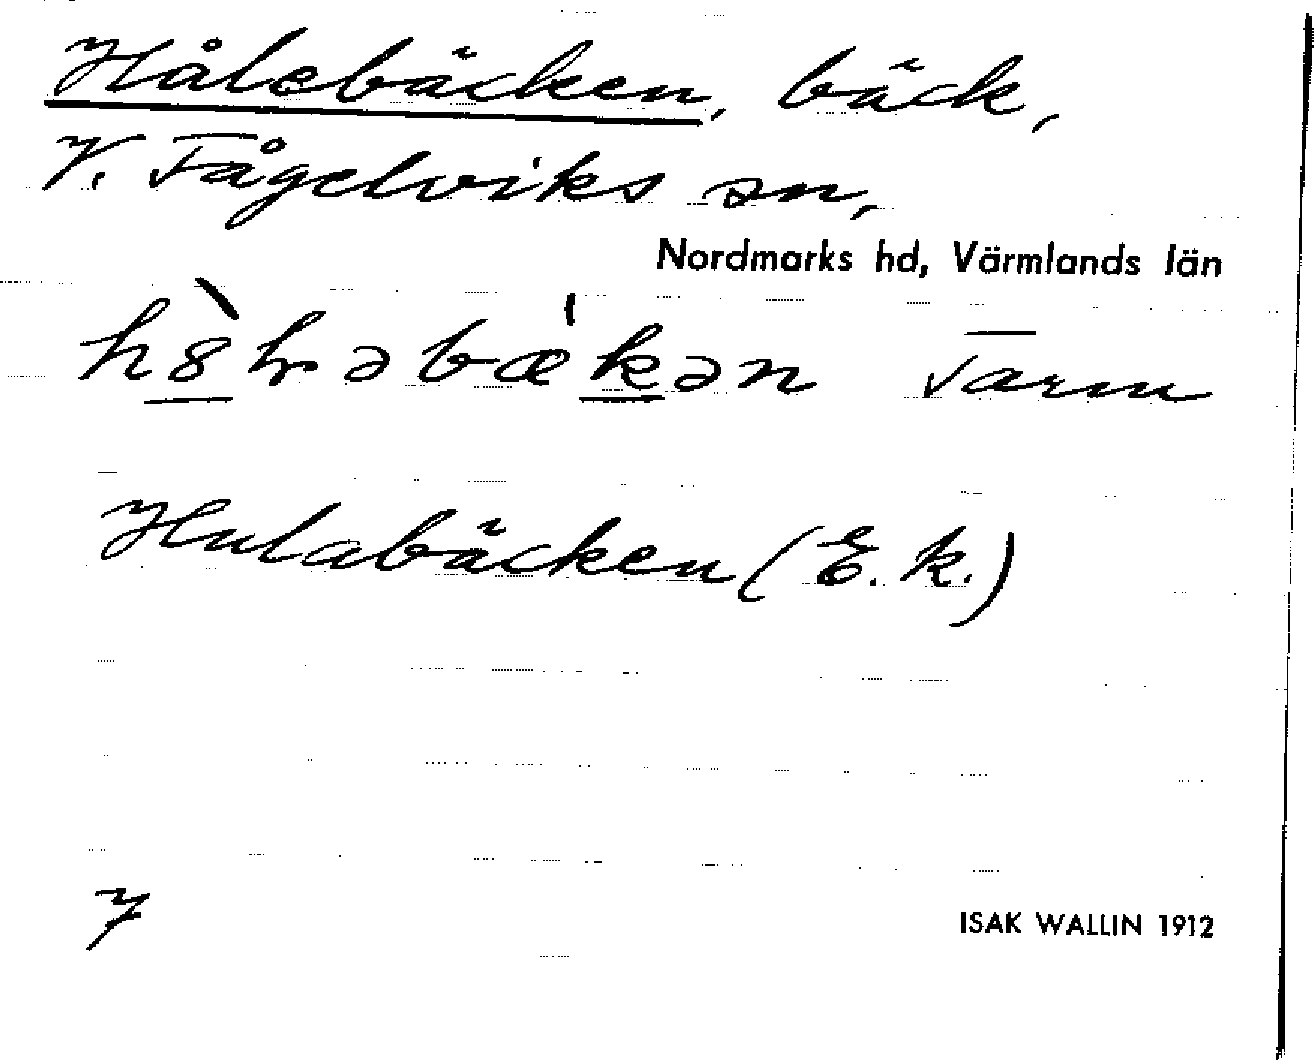 Hålebäcken, bäck,
V. Fågelviks sn,
Nordmarks hd, Värmlands län
Hulabäcken (E. k.)
7
ISAK WALLIN 1912